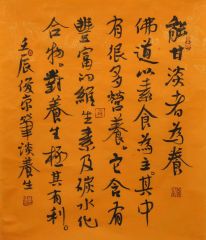 能甘淡者為養
佛道以素食為主。其中
有很多營養。它含有
豐富的維生素及碳水化
合物。對養生極其有利。
壬辰俊筆談養生